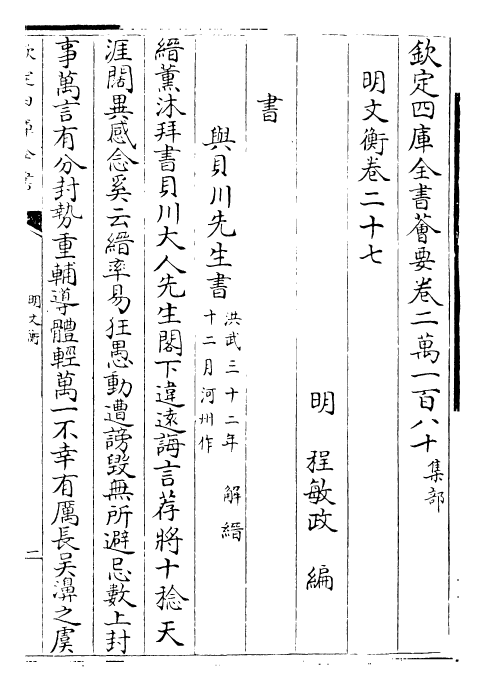 欽定四庫全書薈要卷二萬一百八十 集部
明文衡卷二十七
明 程敏政 編
書
與貝川先生書 洪武三十二年十二月河州作 解縉
縉薰沐拜書貝川大人先生閣下違遠誨言荐將十稔天
涯闊異感念奚云縉率易狂愚動遭謗毀無所避忌數上封
事萬言有分封勢重輔導體輕萬一不幸有厲長吳濞之虞
欽定四庫全書
明文衡
二